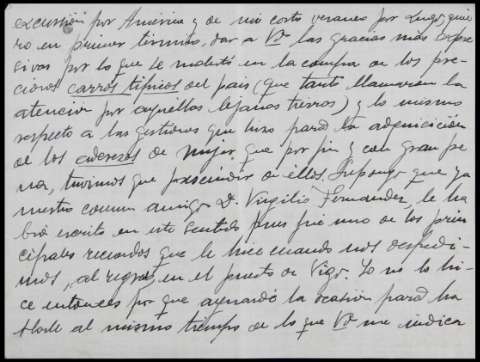 excursión por América y de mi corto veraneo por Lugo, quie
ro en primer término, dar a Vd las gracias más expre
sivas por lo que se molestó en la compra de los pre-
ciosos carros típicos del país (que tanto llamarían la
atención por aquellas lejanas tierras) y lo mismo
respecto a las gestiones que hizo para la adquisición
de los aderezos de mujer que por fin y con gran pe
na, tuvimos que prescindir de ellos. Supongo que ya
nuestro común amigo D. Virgilio Fernández, le ha
brá escrito en este sentido pues fué uno de los prin
cipales recuerdos que le hice cuando nos despedi-
mos, al regreso, en el puerto de Vigo. Yo no lo hi-
ce entonces por que aguardé la ocasión para ha
blarle al mismo tiempo de lo que Vd me indica